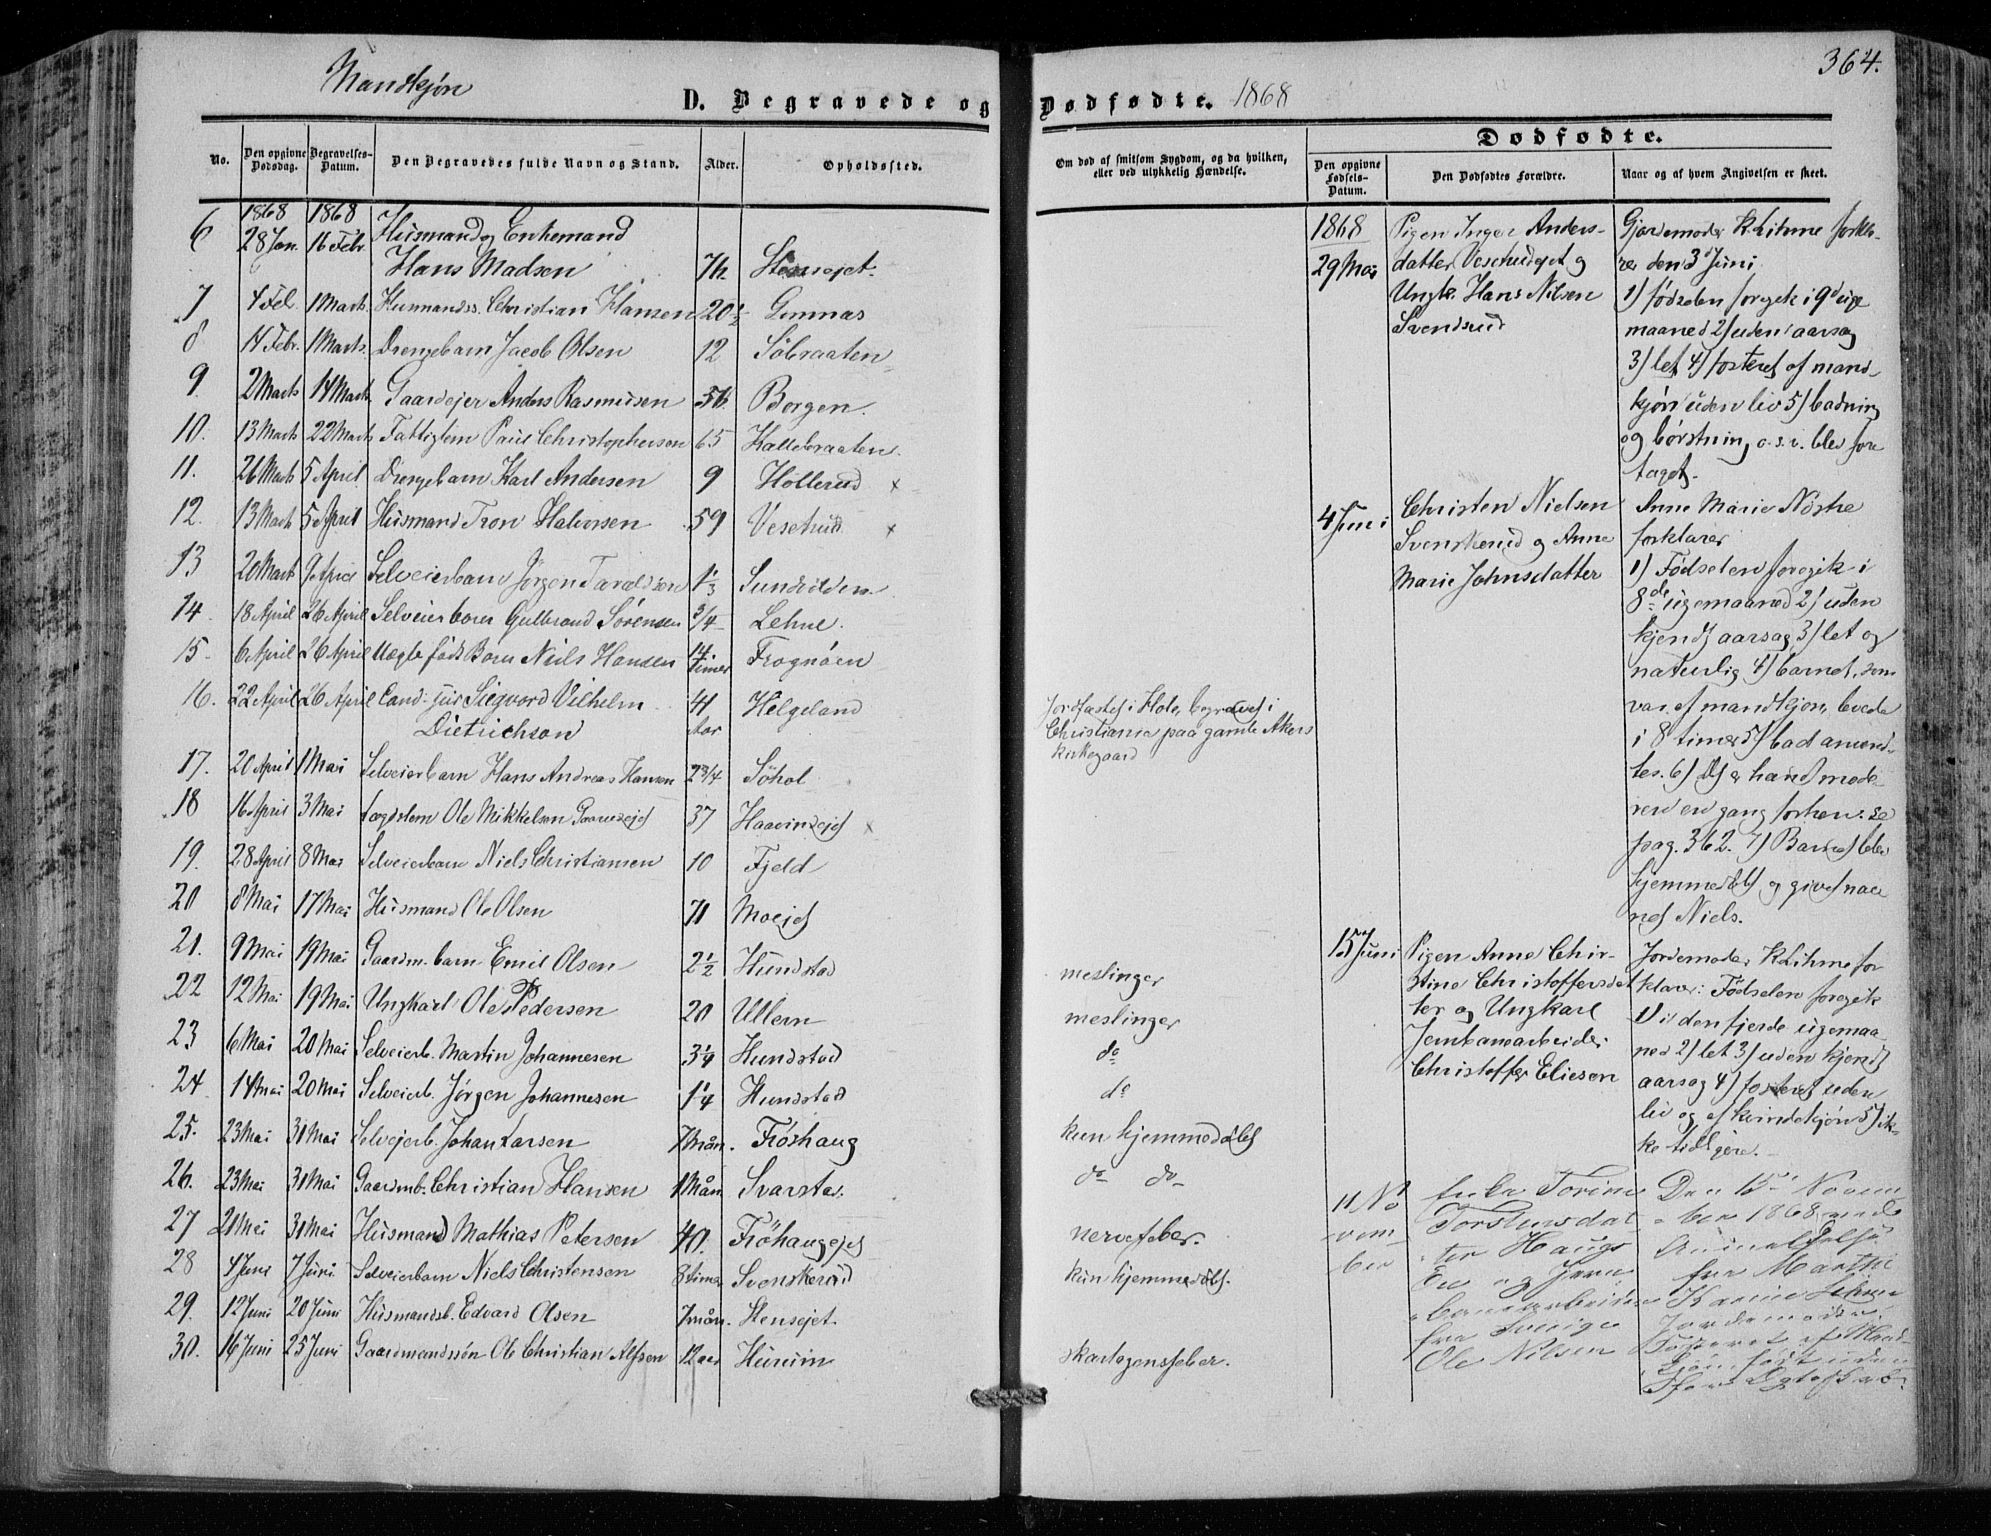 Mandkjøn
D. Begravede og
No.
Den opgivne Dødsdag.
Begravelses-Datum.
Den Begravedes fulde Navn og Stand.
Alder.
Opholdssted.
1868 1868
6 28 Jan. 16 Febr Husmand og Enkemand
Hans Madsen 74 Stensejet.
7 4 Feb. 1 Marts Husmandss. Christian Hansen 20½ Gomnæs
8 14 Febr. 1 Marts. Drengebarn Jacob Olsen 12 Söbraaten
9. 2 Marts 14 Marts Gaardejer Anders Rasmussen 56. Borgen.
10. 13 Marts 22 Marts Fattiglem Paul Christophersen 65 Kallebraaten.
11. 26 Marts 5 April Drengebarn Karl Andersen 9 Hollerud x
12. 13 Marts 5 April Husmand Tron Halvorsen 59 Vesetrud x
13 20 Mart 9 April Selveierbarn Jørgen Taraldsen 1⅓ Sundvolden
14. 18 April 26 April Selveierbarn Gulbrand Sørensen 3/4 Lehne.
15. 6 April 26 April Uægte født Barn Niels Hansen 14 timer Frognöen
16. 22 April 26 April Cand. jur Siegvard Vilhelm 41 Helgeland
Dietrichson Aar
17. 20 April 1 Mai Selveierbarn Hans Andreas Hansen 2 3/4 Söhol
18 16 April 3 Mai Lægdslem Ole Mikkelsen 37 Haavindejet x
19. 28 April 8 Mai Selveierbarn Niels Christiansen 10 Fjeld
20 8 Mai 17 Mai Husmand Ole Olsen 71 Moejet
21. 9 Mai 19 Mai Gaardm. barn Emil Olsen 2½ Hundstad
22 12 Mai 19 Mai Ungkarl Ole Pedersen 20 Ullern
23 6 Mai 20 Mai Selveierb. Martin Johannesen 3¼ Hundstad
24. 14 Mai 20 Mai Selveierb. Jørgen Johannesen 1¼ Hundstad
25. 23 Mai 31 Mai Selvejerb. Johan Larsen 7 mån. Fröshaug
26. 23 Mai 31 Mai Gaardmb. Christian Hansen 1 Mån. Svarstad.
27 21 Mai 31 Mai Husmand Mathias Petersen 40. Fröhaugejet
28 4 Juni 7 Juni Selveierbarn Niels Christensen 8 timer Svenskerud
29. 12 Juni 20 Juni Husmandsb. Edvard Olsen 7 mån. Stensejet.
30. 16 Juni 25 Juni Gaardmandssön Ole Christian Alfsen 12 aar Hurum
364.
Dødfødte. 1868
Om død af smitsom Sygdom, og da hvilken,
eller ved ulykkelig Hændelse.
Dødfødte.
Den opgivne Fødsels-Datum.
Den Dødfødtes Forældre.
Naar og af hvem Angivelsen er skeet.
Jordfæstet i Hole, begravet i
Christiania paa gamle Akers
kirkegaard
meslinger
meslinger
do
do
kun hjemmedøbt
do do
nervefeber.
kun hjemmedøbt.
skarlagensfeber.
1868
29 Mai
Pigen Inger Anders-
datter Vesetrudejet og
Ungk. Hans Nilsen
Svendsrud
Gjordemoder K Lihme forkla-
rer den 3 Juni
1) fødselen foregik i 9de uge
maaned 2) uden aarsag
3) let 4) fosteret af mand-
kjøn uden liv 5) badning
og børstning o.s.v. blev fore
taget.
4 Juni
Christen Nielsen
Svenskerud og Anne
Marie Johnsdatter
Anne Marie Nöstre
forklarer
1) Fødselen foregik i
8de ugemaaned 2) uden
kjendt aarsag 3) let og
naturlig 4) barnet, som
var af mandkjøn, levede
i 8 timer 5) bad anvend-
tes. 6) Det er hændt mode-
ren en gang forhen: se
pag. 362. 7) Barnet blev
hjemmedøbt og givet nav
net Niels.
15 Juni
Pigen Anne Chri-
stine Christoffersdat
ter og Ungkarl
Jernbanearbeider
Christoffer Eliesen
Jordemoder K Lihme for
klarer: Fødselen foregik
1) i den fjerde ugemaa
ned 2) let 3) uden kjendt
aarsag 4) fosteret uden
liv og af kvindekjön 5) ik-
ke tidligere.
11 No
vem
ber
Enke Torine
Torstensdat
ter Haugs
Ei og Jern
banearbeider
fra Sverige
Ole Nilsen
Den 15de Novem
ber 1868 
Anmeldelse
fra Marthe
Karine Lihme
Jordemoder.
Fosteret af Mand
kjøn født uden